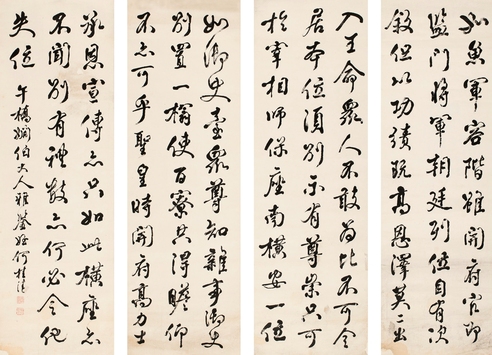 如魚軍容階雖開府官即
監門將軍朝廷列位自有次
敘但以功績既高恩澤莫二出
入王命眾人不敢為比不可令
居本位須別示有尊崇只可
於宰相師保座南橫安一位
如御史臺眾尊知雜事御史
別置一榻使百寮共得瞻仰
不亦可乎聖皇時開府高力士
承恩宣傳亦只如此橫座亦
不聞別有禮數亦何必令他
失位
午橋姻伯大人雅鑒姪何桂清